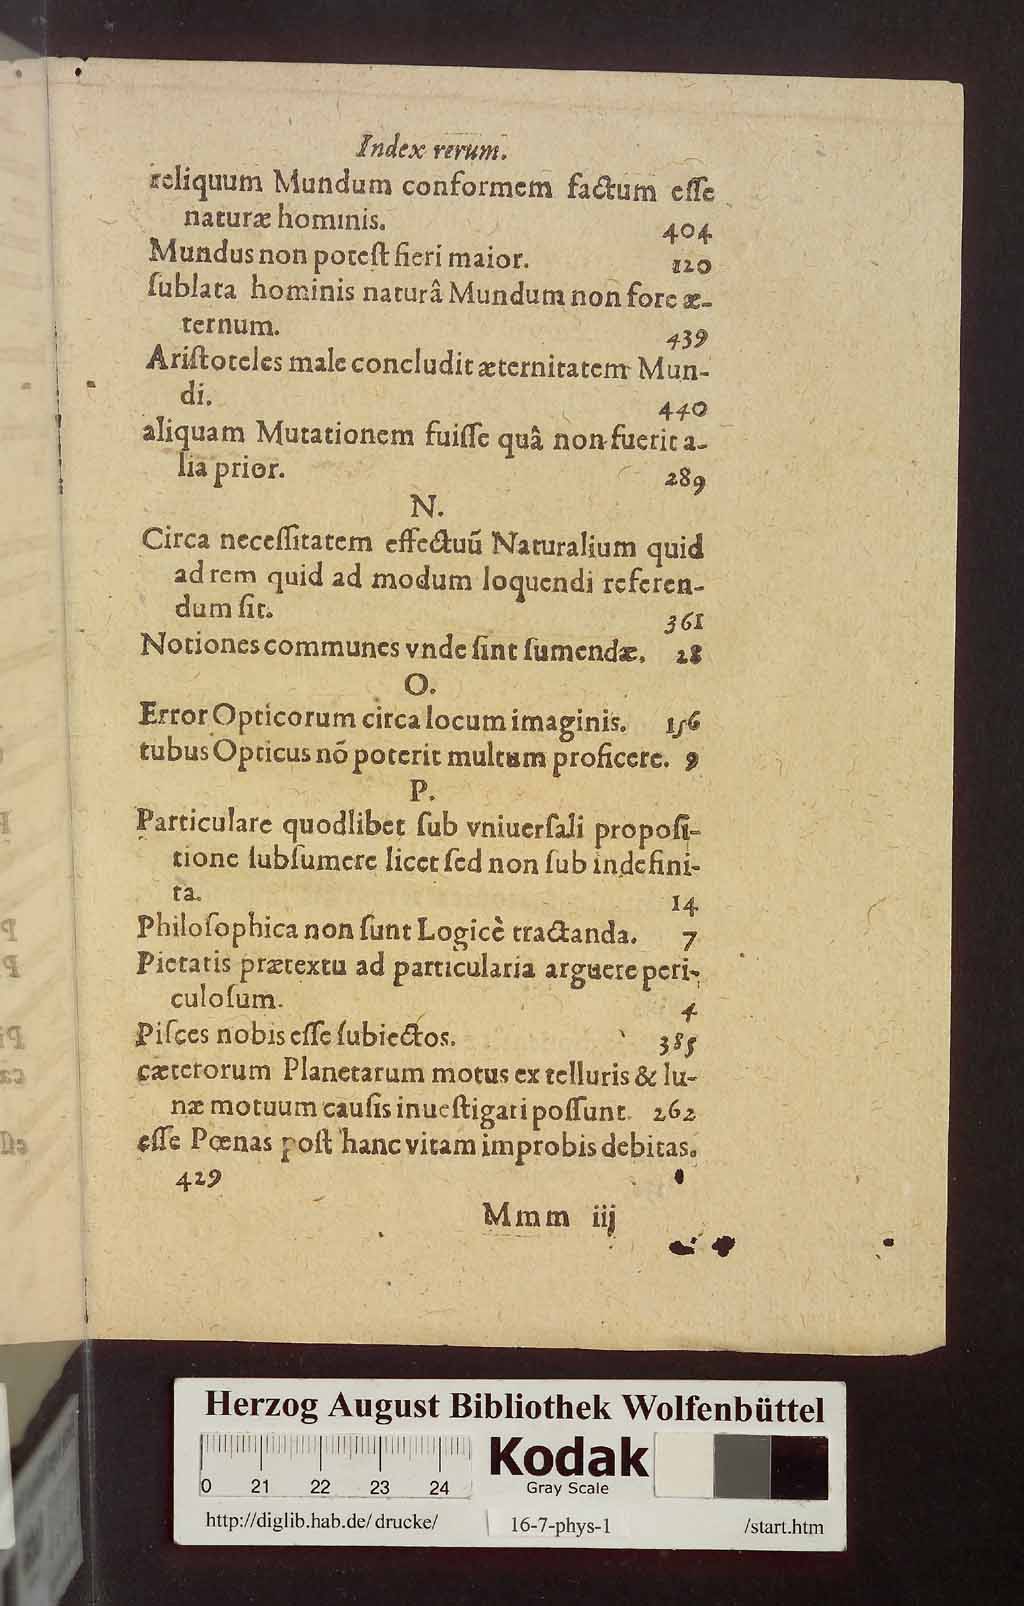 Index rerum.
reliquum Mundum conformem factum eſſe
naturæ hominis. 404
Mundus non poteſt fieri maior. 120
ſublata hominis naturâ Mundum non fore æ-
ternum. 439
Ariſtoteles male concludit æternitatem Mun-
di. 440
aliquam Mutationem fuiſſe quâ non fuerit a-
lia prior. 289
N.
Circa neceſſitatem effectuū Naturalium quid
ad rem quid ad modum loquendi referen-
dum ſit. 361
Notiones communes vnde ſint ſumendæ. 28
O.
Error Opticorum circa locum imaginis. 156
tubus Opticus nō poterit multum proficere. 9
P.
Particulare quodlibet ſub vniuerſali propoſi-
tione ſubſumere licet ſed non ſub indefini-
ta. 14
Philoſophica non ſunt Logicè tractanda. 7
Pietatis prætextu ad particularia arguere peri-
culoſum. 4
Piſces nobis eſſe ſubiectos. 385
cæterorum Planetarum motus ex telluris & lu-
næ motuum cauſis inueſtigari poſſunt. 262
eſſe Pœnas poſt hanc vitam improbis debitas.
429
Mmm iij
Herzog August Bibliothek Wolfenbüttel
0 21 22 23 24
Kodak
Gray Scale
http://diglib.hab.de/drucke/ 16-7-phys-1 /start.htm